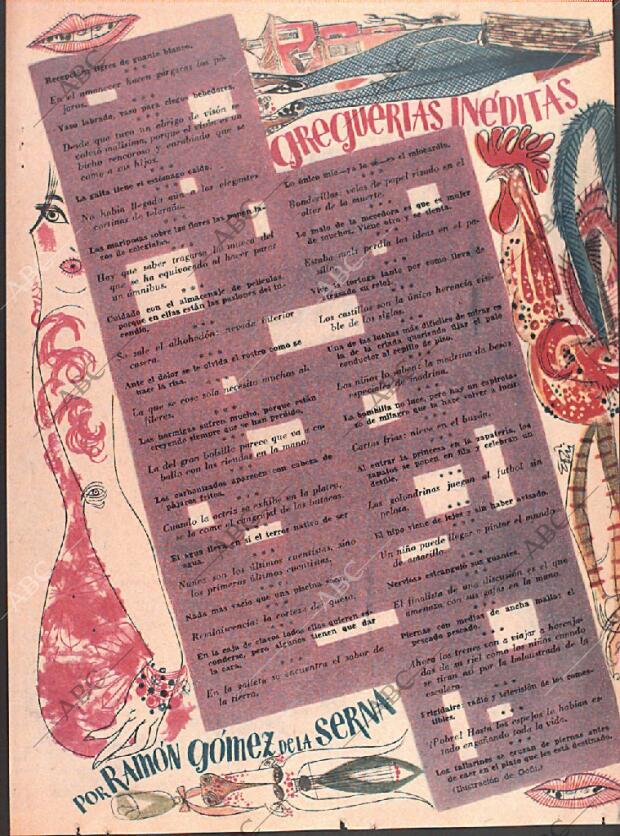 GREGUERIAS INÉDITAS
Recepción: tigres de guante blanco.
En el amanecer hacen gárgaras los pá-
jaros.
Vaso labrado, vaso para ciegos bebedores.
Desde que tuvo un abrigo de visón se
volvió malísima, porque el visón es un
bicho rencoroso y enrabiado que se
come a sus hijos.
La gaita tiene el estómago caído.
No había llegado aún a las elegantes
cortinas de telaraña.
Las mariposas sobre las flores las ponen la-
zos de colegialas.
Hay que saber tragarse la mueca del
que se ha equivocado al hacer parar
un ómnibus.
Cuidado con el almacenaje de películas,
porque en ellas están las pasiones del in-
cendio.
Se sale el alhohadón: nevada interior
casera.
Ante el dolor se le olvida el rostro como se
hace la risa.
La que se cose sola necesita muchos al-
fileres.
Las hormigas sufren mucho, porque están
creyendo siempre que se han perdido.
La del gran bolsillo parece que va a ca-
ballo con las riendas en la mano.
Los carbonizados aparecen con cabeza de
pájaros fritos.
Cuando la actriz se exhibe en la platea,
se la come el cangrejal de las butacas.
El agua lleva en sí el terror nativo de ser
agua.
Nunca son los últimos cuentistas, sino
los primeros últimos cuentistas.
Nada más vacío que una piscina
Reminiscencia: la corteza del queso.
En la caja de clavos todos ellos quieren es-
conderse, pero algunos tienen que dar
la cara.
En la galleta se encuentra el sabor de
la tierra.
Lo único mío—ya lo sé—es el
Banderillas: velas de papel rizado en el
altar de la muerte.
Lo malo de la mecedora es que es mujer
de muchos. Viene otro y se sienta.
Estaba mal: perdía las ideas en el pa-
sillo.
Vive la tortuga tanto por como lleva de
atrasado su reloj.
Los castillos son la única herencia visi-
ble de los siglos.
Una de las luchas más difíciles de mirar es
la de la criada queriendo fijar el palo
conductor al cepillo de piso.
Los niños lo saben: la madrina da besos
especiales de madrina.
La bombilla no luce, pero hay un esperota-
zo de milagro que la hace volver a lucir.
Cartas frías: nieve en el buzón.
Al entrar la princesa en la zapatería, los
zapatos se ponen en fila y celebran un
desfile.
Las golondrinas juegan al futbol sin
pelota.
El hipo viene de lejos y sin haber avisado.
Un niño puede llegar a pintar el mundo
de amarillo.
Nerviosa estranguló sus guantes.
El finalista de una discusión es el que
amenaza con sus gafas en la mano.
Piernas con medias de ancha malla: el
pescado pescado.
Ahora los trenes van a viajar a horcaja-
das de su riel como los niños cuando
se tiran así por la balaustrada de la
escalera.
Frigidaire: radio y televisión de los comes-
tibles.
¡Pobre! Hasta los espejos le habían es-
tado engañando toda la vida.
Los tallarines se cruzan de piernas antes
de caer en el plato que les está destinado.
(Ilustración de Goñi.)
POR RAMÓN GÓMEZ DE LA SERNA